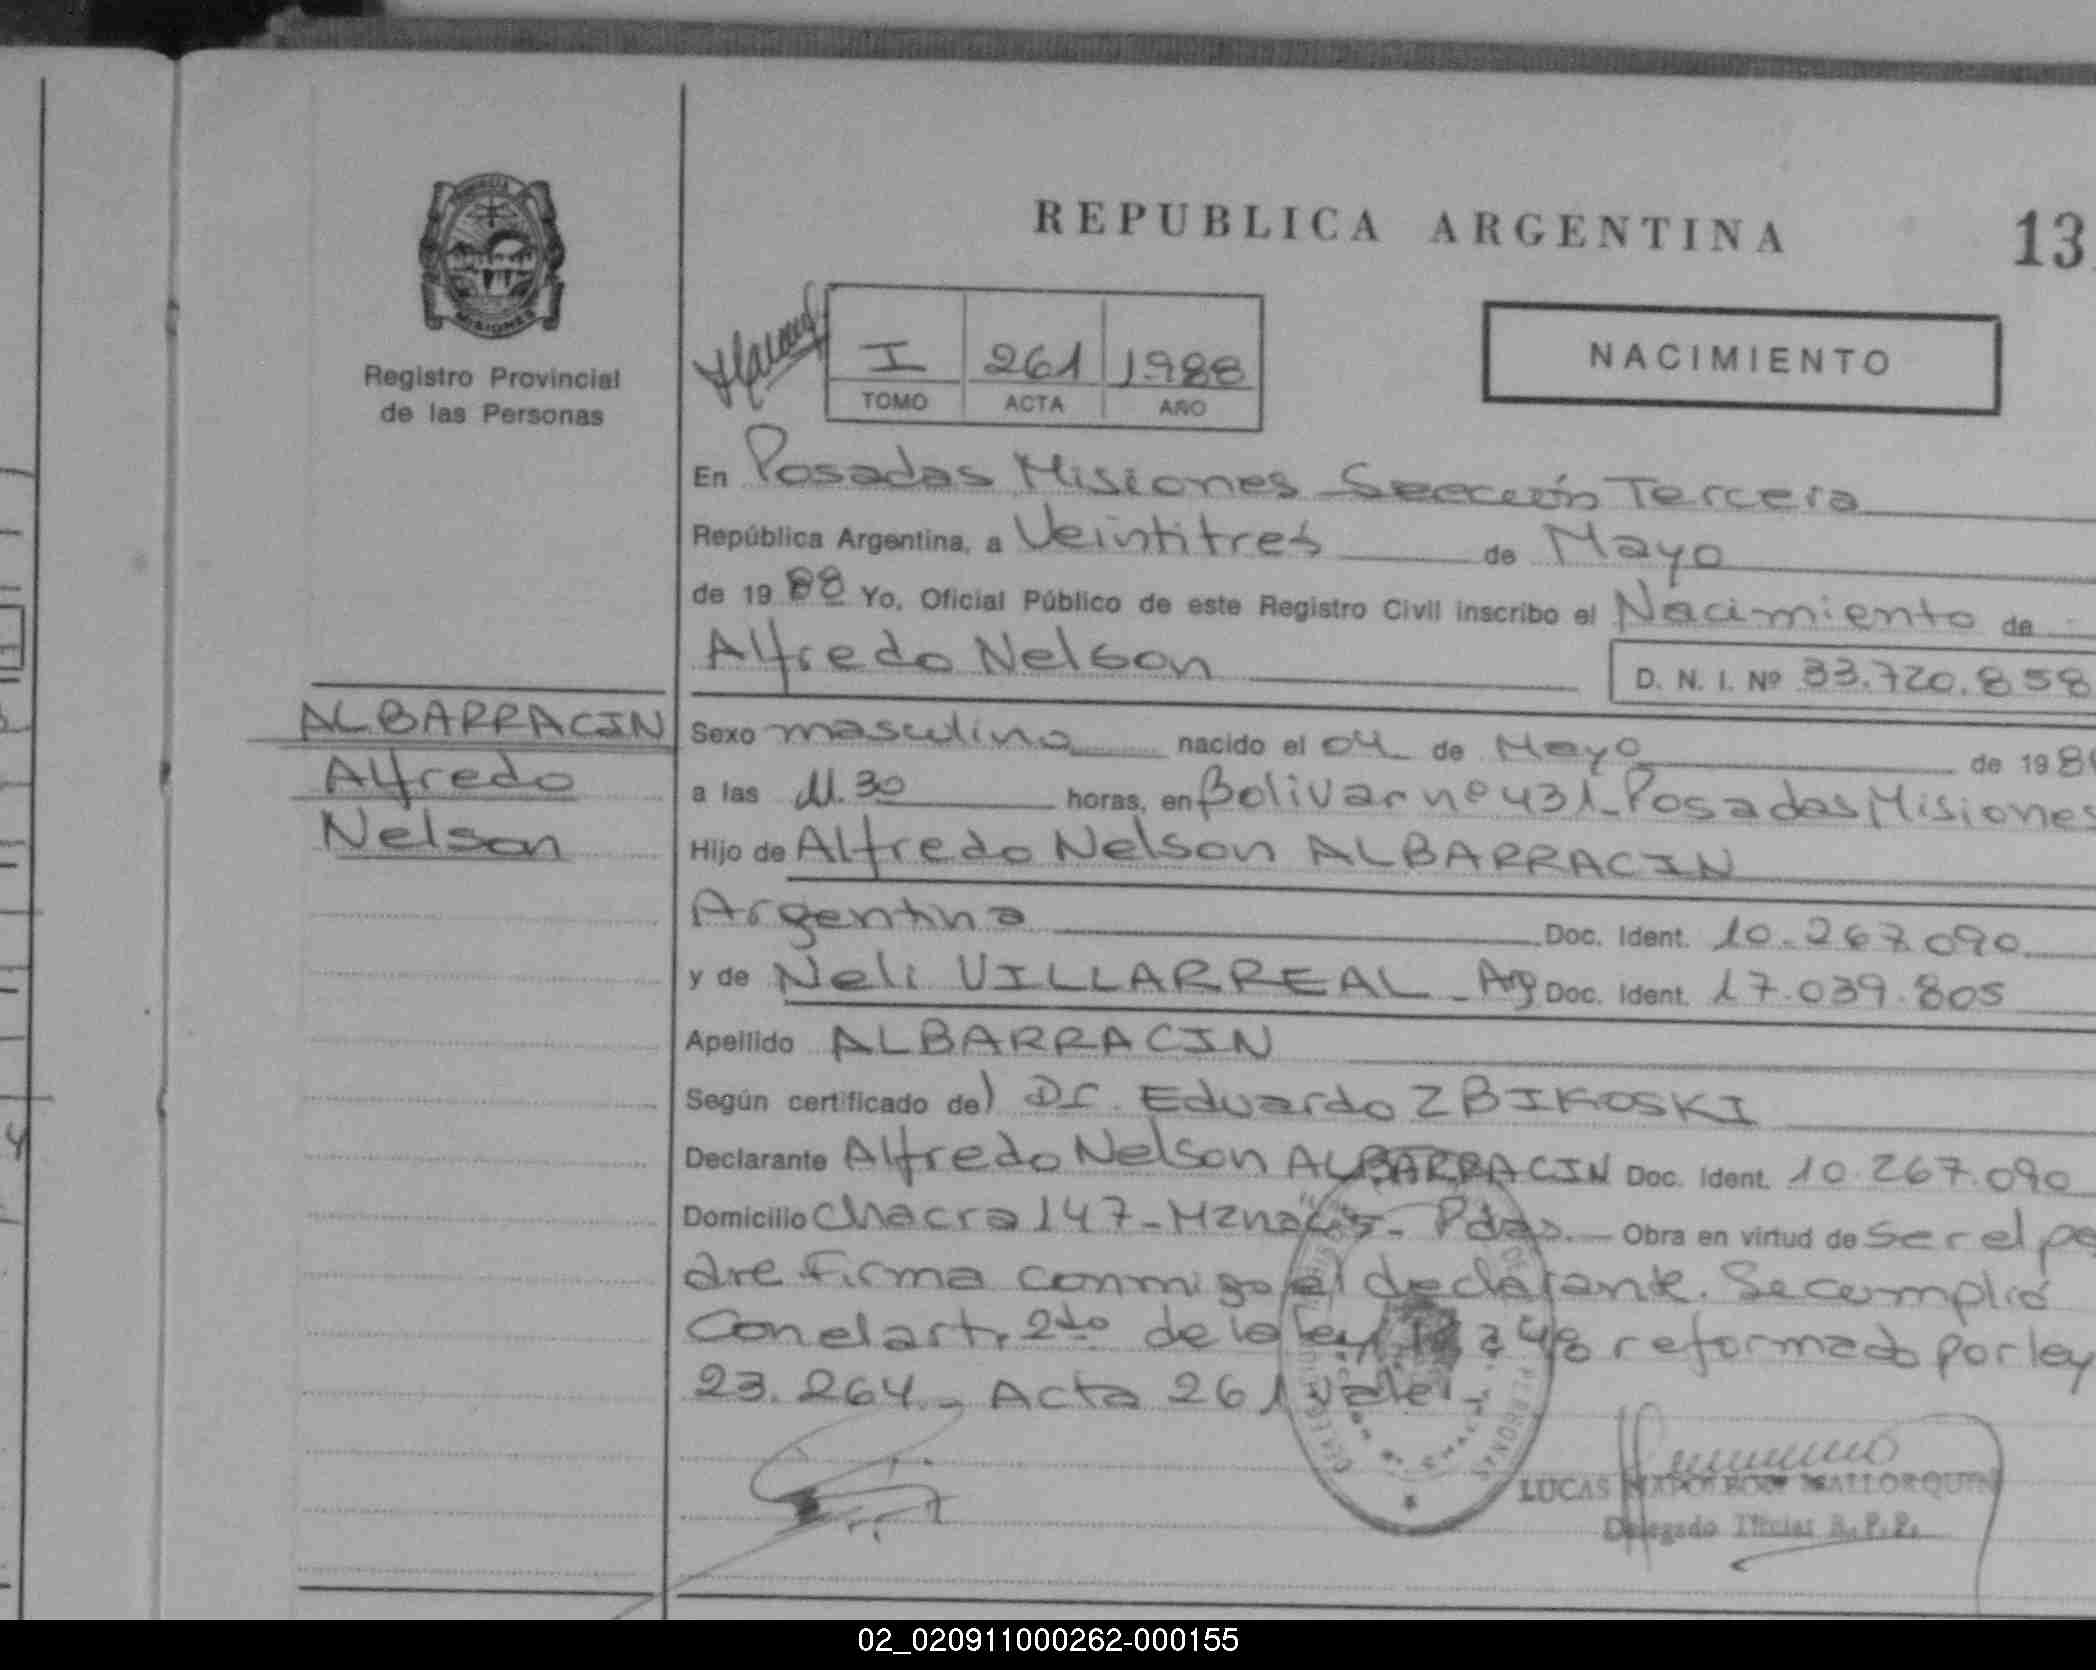 REPUBLICA ARGENTINA
13
MISIONES
Registro Provincial
de las Personas
I 261 1988
TOMO ACTA AÑO
NACIMIENTO
En Posadas Misiones Sección Tercera
República Argentina, a Veintitres de Mayo
de 19 88 Yo, Oficial Público de este Registro Civil inscribo el Nacimiento de
Alfredo Nelson
D. N. I. Nº 33.720.858
ALBARRACIN
Alfredo
Nelson
Sexo masculino nacido el 04 de Mayo de 198
a las 11.30 horas, en Bolivar nº 431_Posadas Misiones
Hijo de Alfredo Nelson ALBARRACIN
Argentina Doc. Ident. 10.267.090
y de Neli VILLARREAL - Arg Doc. Ident. 17.039.805
Apellido ALBARRACIN
Según certificado del Dr. Eduardo ZBIKOSKI
Declarante Alfredo Nelson ALBARRACIN Doc. Ident. 10.267.090
Domicilio Chacra 147- Pdas. Obra en virtud de ser el pa
dre Firma conmigo el declarante. Se cumplió
Con el art. 2do de la ley reformado por ley
23.264.- Acta 261 vale.-
LUCAS NAPOLEON MALLORQUIN
Delegado Titular R.P.P.
02_020911000262-000155